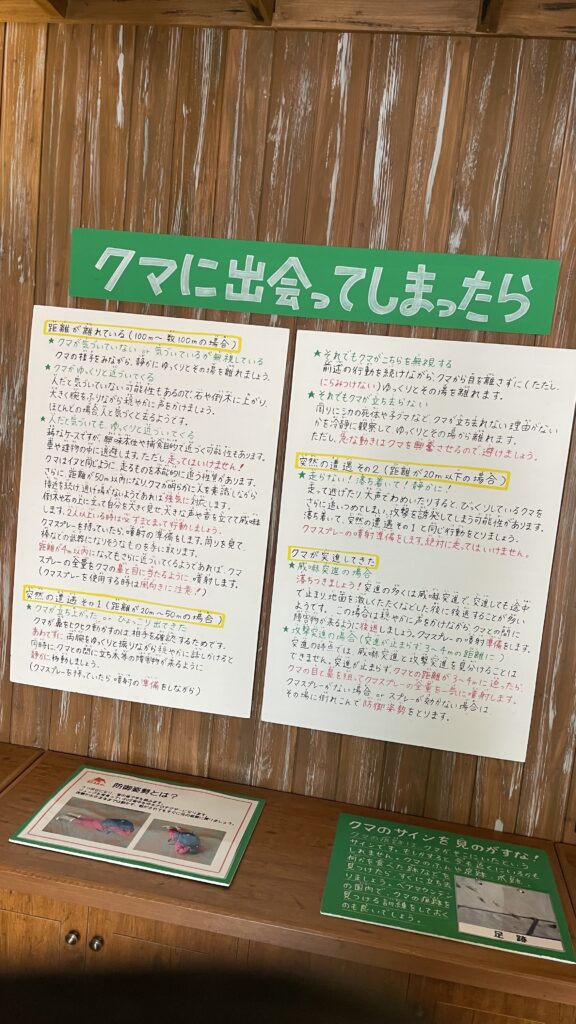 クマに出会ってしまったら
距離が離れている(100m~数100mの場合)
★クマが気づいていない or 気づいているが無視している
クマの様子をみながら、静かにゆっくりとその場を離れましょう。
★クマがゆっくりと近づいてくる
人だと気づいていない可能性もあるので、石や倒木に上がり、
大きく腕をふりながら穏やかに声をかけましょう。
ほとんどの場合人と気づくと去るようです。
★人だと気づいても、ゆっくりと近づいてくる
稀なケースですが、興味本位や捕食目的で近づく可能性もあります。
車や建物の中に退避します。ただし、走ってはいけません!
クマはイヌと同じように、走るものを本能的に追う性質があります。
さらに、距離が50m以内になりクマが明らかに人を意識しながら
接近を続け逃げ場がないようであれば強気に対応します。
倒木や石の上に立って自分を大きく見せ、大きな声や音を立てて威嚇
します。2人以上いる時は必ずまとまって行動しましょう。
クマスプレーを持っていたら、噴射の準備をします。周りを見て、
棒などの武器になりそうなものを手に取ります。
距離が4m以内になってもさらに近づいてくるようであれば、クマ
スプレーの全量をクマの鼻と目に当たるように噴射します。
(クマスプレーを使用する時は風向きに注意!)
突然の遭遇 その1(距離が20m~50mの場合)
★クマが立ち上がった or ひょっこり出てきた
クマが鼻をヒクヒク動かすのは相手を確認するためです。
あわてずに両腕をゆっくり振りながら穏やかに話しかけると
同時に、クマとの間に立ち木等の障害物が来るように
静かに移動しましょう。
(クマスプレーを持っていたら噴射の準備をしながら)
★それでもクマがこちらを無視する
前述の行動を続けながら、クマから目を離さずに(ただし、
にらみつけない)ゆっくりとその場を離れます。
★それでもクマが立ち去らない
周りにシカの死体や子グマなど、クマが立ち去れない理由がない
かを冷静に観察して、ゆっくりとその場から離れます。
ただし、急な動きはクマを興奮させるので、避けましょう。
突然の遭遇 その2(距離が20m以下の場合)
★走らない!落ち着いて!静かに!
走って逃げたり、大声でわめいたりすると、びっくりしているクマを
さらに追いつめてしまい、攻撃を誘発してしまう可能性があります。
落ち着いて、突然の遭遇その1と同じ行動をとりましょう。
クマスプレーの噴射準備をします。絶対に走ってはいけません。
クマが突進してきた
★威嚇突進の場合
落ちつきましょう!突進の多くは威嚇突進で、突進しても途中
で止まり地面を激しくたたくなどした後に後退することが多い
ようです。この場合は穏やかに声をかけながら、クマとの間に
障害物が来るように後退しましょう。クマスプレーの噴射準備をします。
★攻撃突進の場合(突進が止まらず3~4mの距離に)
突進の時点では、威嚇突進と攻撃突進を見分けることは
できません。突進が止まらず、クマとの距離が3~4mに迫ったら、
クマの目と鼻を狙ってクマスプレーの全量を一気に噴射します。
クマスプレーがない場合 or スプレーが効かない場合は
その場に倒れこんで防御姿勢をとります。
防御姿勢とは?
クマのサインを見のがすな!
足跡